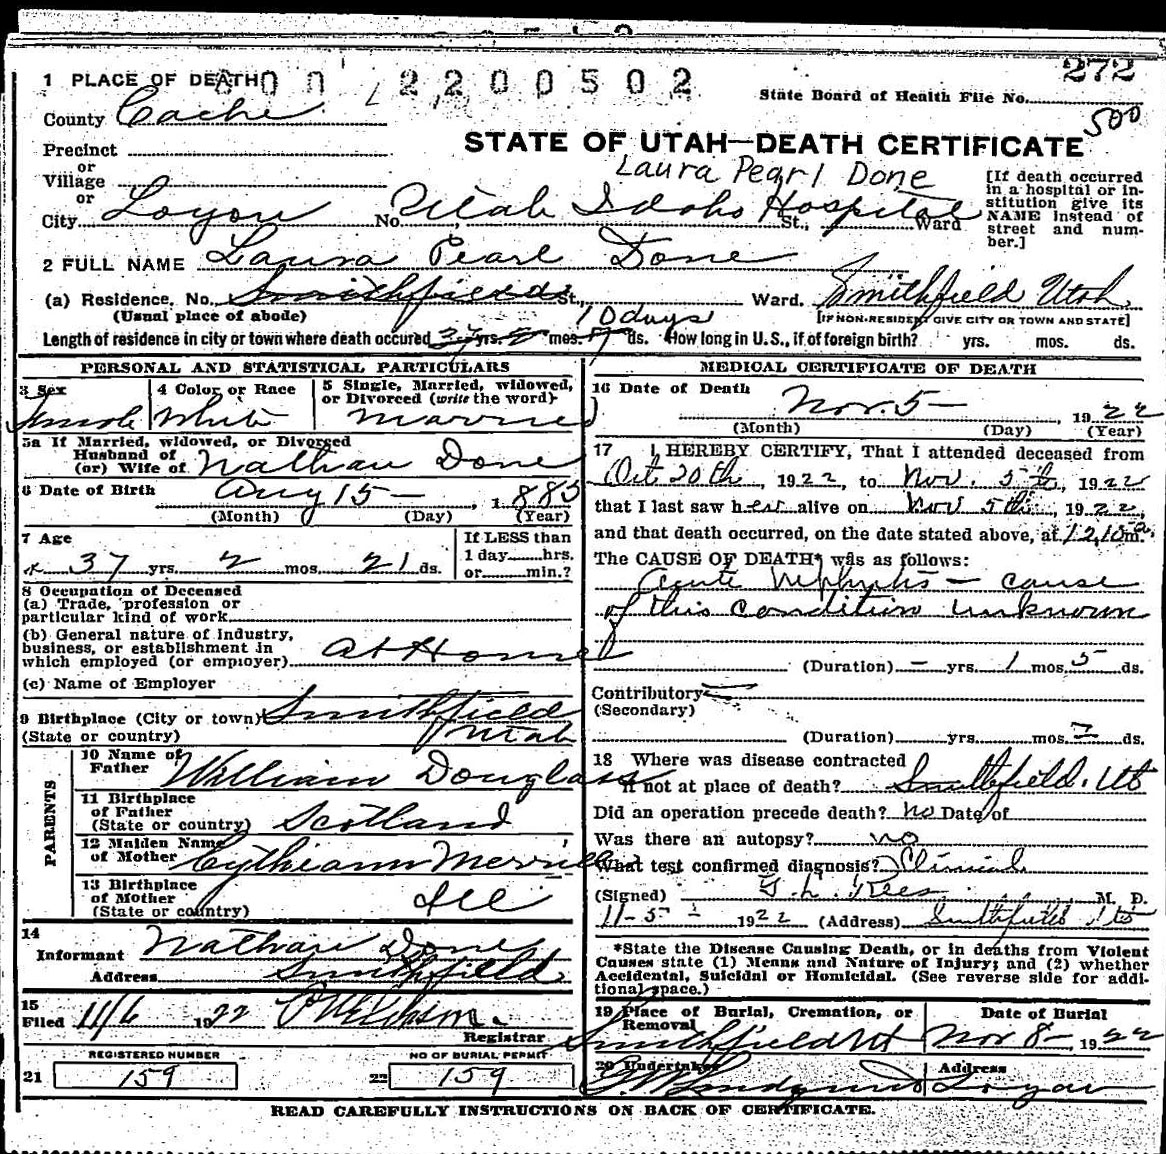 272
1 PLACE OF DEATH 2200502
State Board of Health File No.
500
County Cache
STATE OF UTAH—DEATH CERTIFICATE
Precinct
or
Village
or
Laura Pearl Done
City Logan No. Utah Idaho Hospital St., Ward
[If death occurred in a hospital or institution give its NAME instead of street and number.]
2 FULL NAME Laura Pearl Done
(a) Residence. No. Smithfield St., Ward. Smithfield Utah
(Usual place of abode) [IF NON-RESIDENT GIVE CITY OR TOWN AND STATE]
10 days
Length of residence in city or town where death occured yrs. mos. ds. How long in U.S., if of foreign birth? yrs. mos. ds.
PERSONAL AND STATISTICAL PARTICULARS
3 Sex Female
4 Color or Race White
5 Single, Married, widowed, or Divorced (write the word) Married
5a If Married, widowed, or Divorced
Husband of
(or) Wife of Nathan Done
6 Date of Birth Aug 15 — 1885
(Month) (Day) (Year)
7 Age 37 yrs. 2 mos. 21 ds.
If LESS than
1 day hrs.
or min.?
8 Occupation of Deceased
(a) Trade, profession or
particular kind of work
(b) General nature of industry,
business, or establishment in
which employed (or employer) At Home
(c) Name of Employer
9 Birthplace (City or town) Smithfield
(State or country) Utah
PARENTS
10 Name of Father William Douglass
11 Birthplace
of Father
(State or country) Scotland
12 Maiden Name
of Mother Cythiann Merrill
13 Birthplace
of Mother
(State or country) Ill
14
Informant Nathan Done
Address Smithfield
15
Filed 11/6 1922
Registrar
REGISTERED NUMBER
21 159
NO OF BURIAL PERMIT
22 159
MEDICAL CERTIFICATE OF DEATH
16 Date of Death Nov. 5 — 1922
(Month) (Day) (Year)
17 I, HEREBY CERTIFY, That I attended deceased from
Oct 20th, 1922, to Nov. 5th, 1922
that I last saw her alive on Nov 5th, 1922,
and that death occurred, on the date stated above, at 12,10 a m.
The CAUSE OF DEATH* was as follows:
Acute Nephritis — cause
of this condition unknown
(Duration) — yrs. 1 mos. 5 ds.
Contributory
(Secondary)
(Duration) yrs. mos. ds.
18 Where was disease contracted
if not at place of death? Smithfield. Ut
Did an operation precede death? no Date of
Was there an autopsy? no
What test confirmed diagnosis? Clinical
(Signed) G. L. Rees M. D.
11-5- 1922 (Address) Smithfield Ut
*State the Disease Causing Death, or in deaths from Violent
Causes state (1) Means and Nature of Injury; and (2) whether
Accidental, Suicidal or Homicidal. (See reverse side for addi-
tional space.)
19 Place of Burial, Cremation, or
Removal
Smithfield Ut
Date of Burial
Nov 8 — , 1922
20 Undertaker
Address
Logan
READ CAREFULLY INSTRUCTIONS ON BACK OF CERTIFICATE.